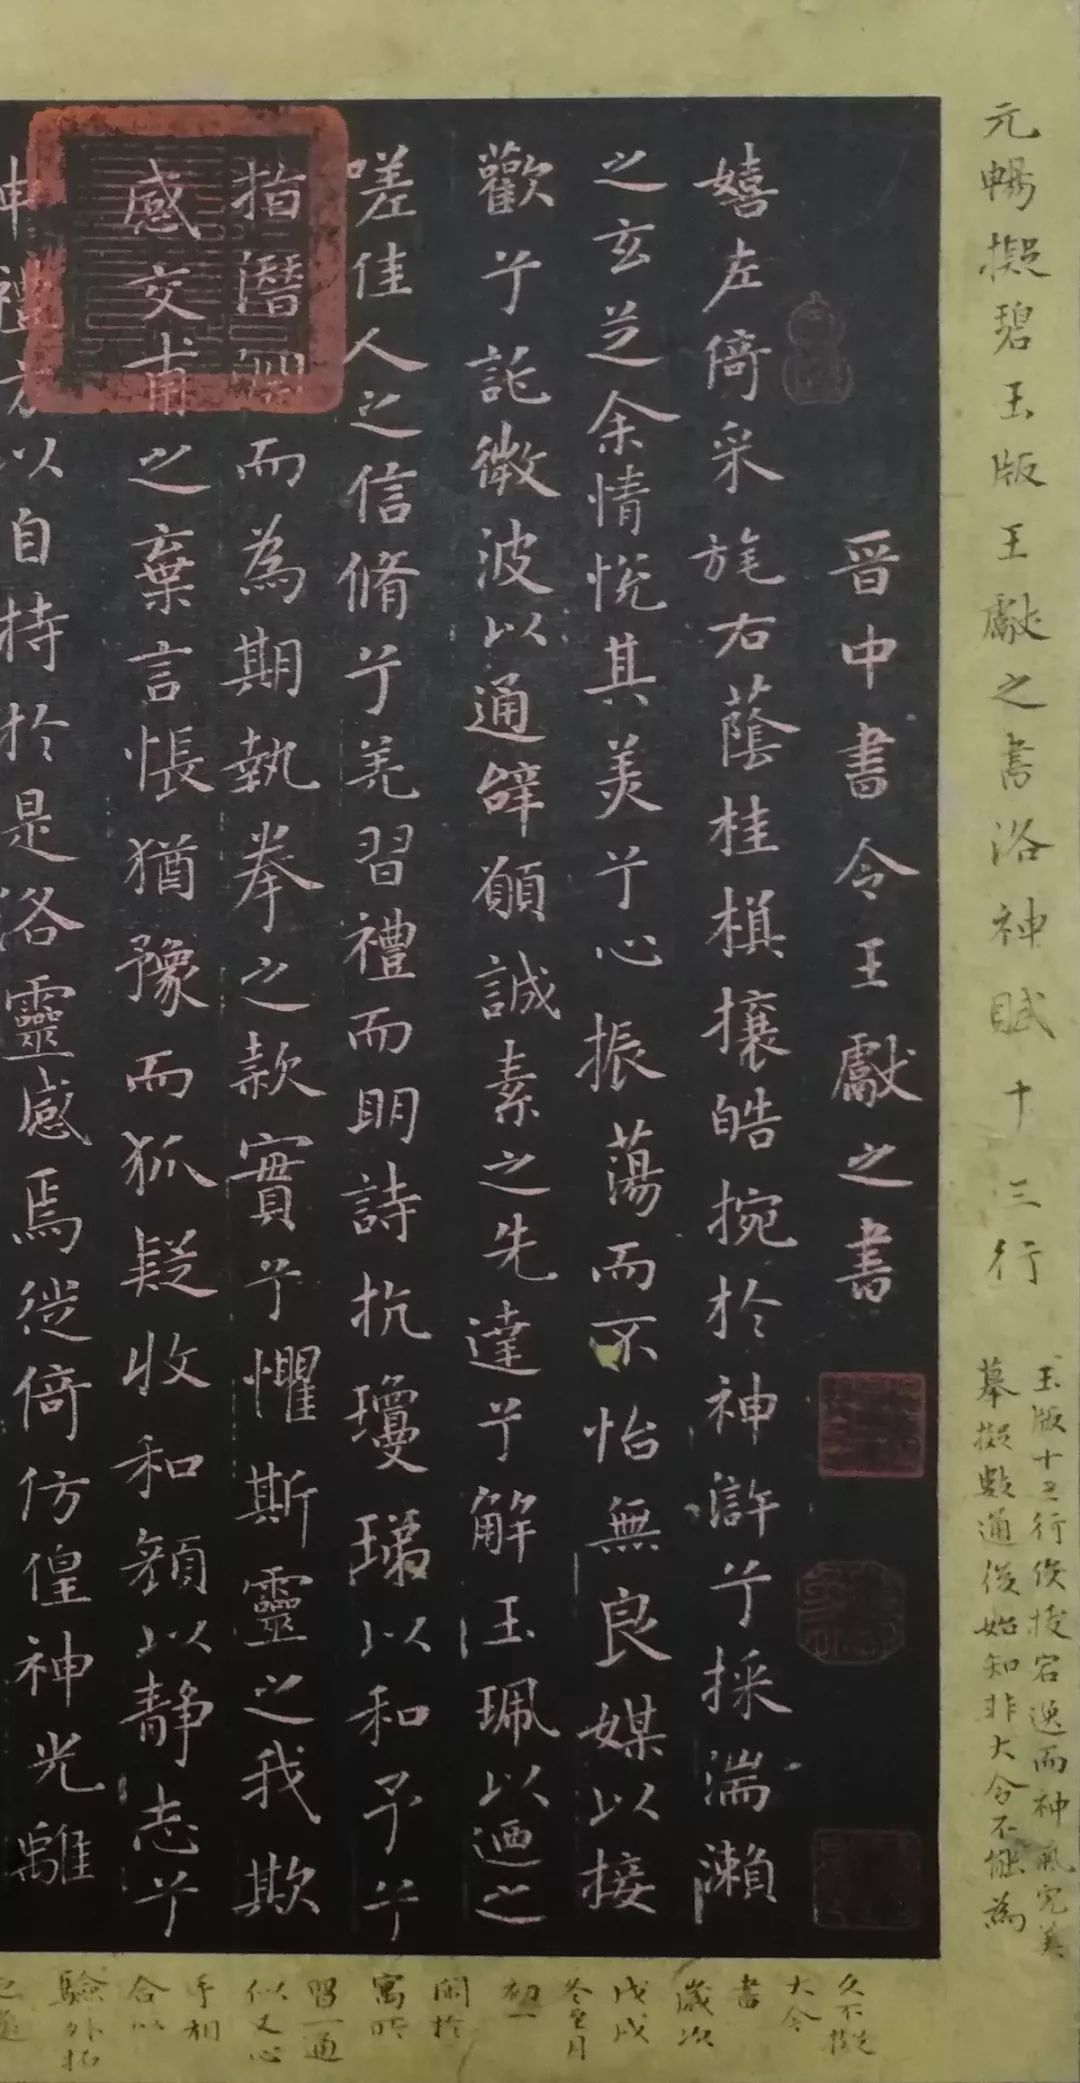 元暢擬碧玉版王獻之書洛神賦十三行
玉版十三行俊拔宕逸而神氣完美
摹擬數通後始知非大令不能為
晉中書令王獻之書
嬉左倚采旄右蔭桂楀攘皓捥於神滸兮採湍瀨
之玄芝余情悅其美兮心振蕩而不怡無良媒以接
歡兮託微波以通辝願誠素之先達兮解玉珮以𨓜之
嗟佳人之信脩兮羌習禮而明詩抗瓊珶以和予兮
指潛淵而為期執拳之款實兮懼斯靈之我欺
感交甫之棄言悵猶豫而狐疑收和顏以靜志兮
申禮方以自持於是洛靈感焉徙倚仿偟神光離
久不擬
大令
書
歲次
戊戌
冬至月
初一
閑於
寓所
習一通
似又心
手相
合以
驗外拓
之